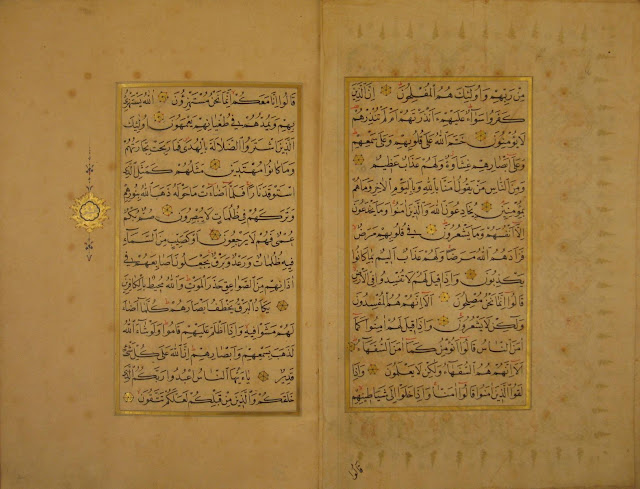 مِنْ رَبِّهِمْ وَأُولٰئِكَ هُمُ الْمُفْلِحُونَ إِنَّ الَّذِينَ
كَفَرُوا سَوَاءٌ عَلَيْهِمْ ءَأَنْذَرْتَهُمْ أَمْ لَمْ تُنْذِرْهُمْ
لَا يُؤْمِنُونَ خَتَمَ اللّٰهُ عَلَى قُلُوبِهِمْ وَعَلَى سَمْعِهِمْ
وَعَلَى أَبْصَارِهِمْ غِشَاوَةٌ وَلَهُمْ عَذَابٌ عَظِيمٌ
وَمِنَ النَّاسِ مَنْ يَقُولُ اٰمَنَّا بِاللّٰهِ وَبِالْيَوْمِ الْاٰخِرِ وَمَا هُمْ
بِمُؤْمِنِينَ يُخَادِعُونَ اللّٰهَ وَالَّذِينَ اٰمَنُوا وَمَا يَخْدَعُونَ
إِلَّا أَنْفُسَهُمْ وَمَا يَشْعُرُونَ فِي قُلُوبِهِمْ مَرَضٌ
فَزَادَهُمُ اللّٰهُ مَرَضًا وَلَهُمْ عَذَابٌ أَلِيمٌ بِمَا كَانُوا
يَكْذِبُونَ وَإِذَا قِيلَ لَهُمْ لَا تُفْسِدُوا فِي الْأَرْضِ
قَالُوا إِنَّمَا نَحْنُ مُصْلِحُونَ أَلَا إِنَّهُمْ هُمُ الْمُفْسِدُونَ
وَلٰكِنْ لَا يَشْعُرُونَ وَإِذَا قِيلَ لَهُمْ اٰمِنُوا كَمَا
اٰمَنَ النَّاسُ قَالُوا أَنُؤْمِنُ كَمَا اٰمَنَ السُّفَهَاءُ
أَلَا إِنَّهُمْ هُمُ السُّفَهَاءُ وَلٰكِنْ لَا يَعْلَمُونَ وَإِذَا
لَقُوا الَّذِينَ اٰمَنُوا قَالُوا اٰمَنَّا وَإِذَا خَلَوْا إِلَى شَيَاطِينِهِمْ
قالوا
قَالُوا إِنَّا مَعَكُمْ إِنَّمَا نَحْنُ مُسْتَهْزِؤُنَ اللّٰهُ يَسْتَهْزِئُ
بِهِمْ وَيَمُدُّهُمْ فِي طُغْيَانِهِمْ يَعْمَهُونَ أُولٰئِكَ
الَّذِينَ اشْتَرَوُا الضَّلَالَةَ بِالْهُدَى فَمَا رَبِحَتْ تِجَارَتُهُمْ
وَمَا كَانُوا مُهْتَدِينَ مَثَلُهُمْ كَمَثَلِ الَّذِي
اسْتَوْقَدَ نَارًا فَلَمَّا أَضَاءَتْ مَا حَوْلَهُ ذَهَبَ اللّٰهُ بِنُورِهِمْ
وَتَرَكَهُمْ فِي ظُلُمَاتٍ لَا يُبْصِرُونَ صُمٌّ بُكْمٌ
عُمْيٌ فَهُمْ لَا يَرْجِعُونَ أَوْ كَصَيِّبٍ مِنَ السَّمَاءِ
فِيهِ ظُلُمَاتٌ وَرَعْدٌ وَبَرْقٌ يَجْعَلُونَ أَصَابِعَهُمْ فِي
اٰذَانِهِمْ مِنَ الصَّوَاعِقِ حَذَرَ الْمَوْتِ وَاللّٰهُ مُحِيطٌ بِالْكَافِرِينَ
يَكَادُ الْبَرْقُ يَخْطَفُ أَبْصَارَهُمْ كُلَّمَا أَضَاءَ
لَهُمْ مَشَوْا فِيهِ وَإِذَا أَظْلَمَ عَلَيْهِمْ قَامُوا وَلَوْ شَاءَ اللّٰهُ
لَذَهَبَ بِسَمْعِهِمْ وَأَبْصَارِهِمْ إِنَّ اللّٰهَ عَلَى كُلِّ شَيْءٍ
قَدِيرٌ يَاءَيُّهَا النَّاسُ اعْبُدُوا رَبَّكُمُ الَّذِي
خَلَقَكُمْ وَالَّذِينَ مِنْ قَبْلِكُمْ لَعَلَّكُمْ تَتَّقُونَ